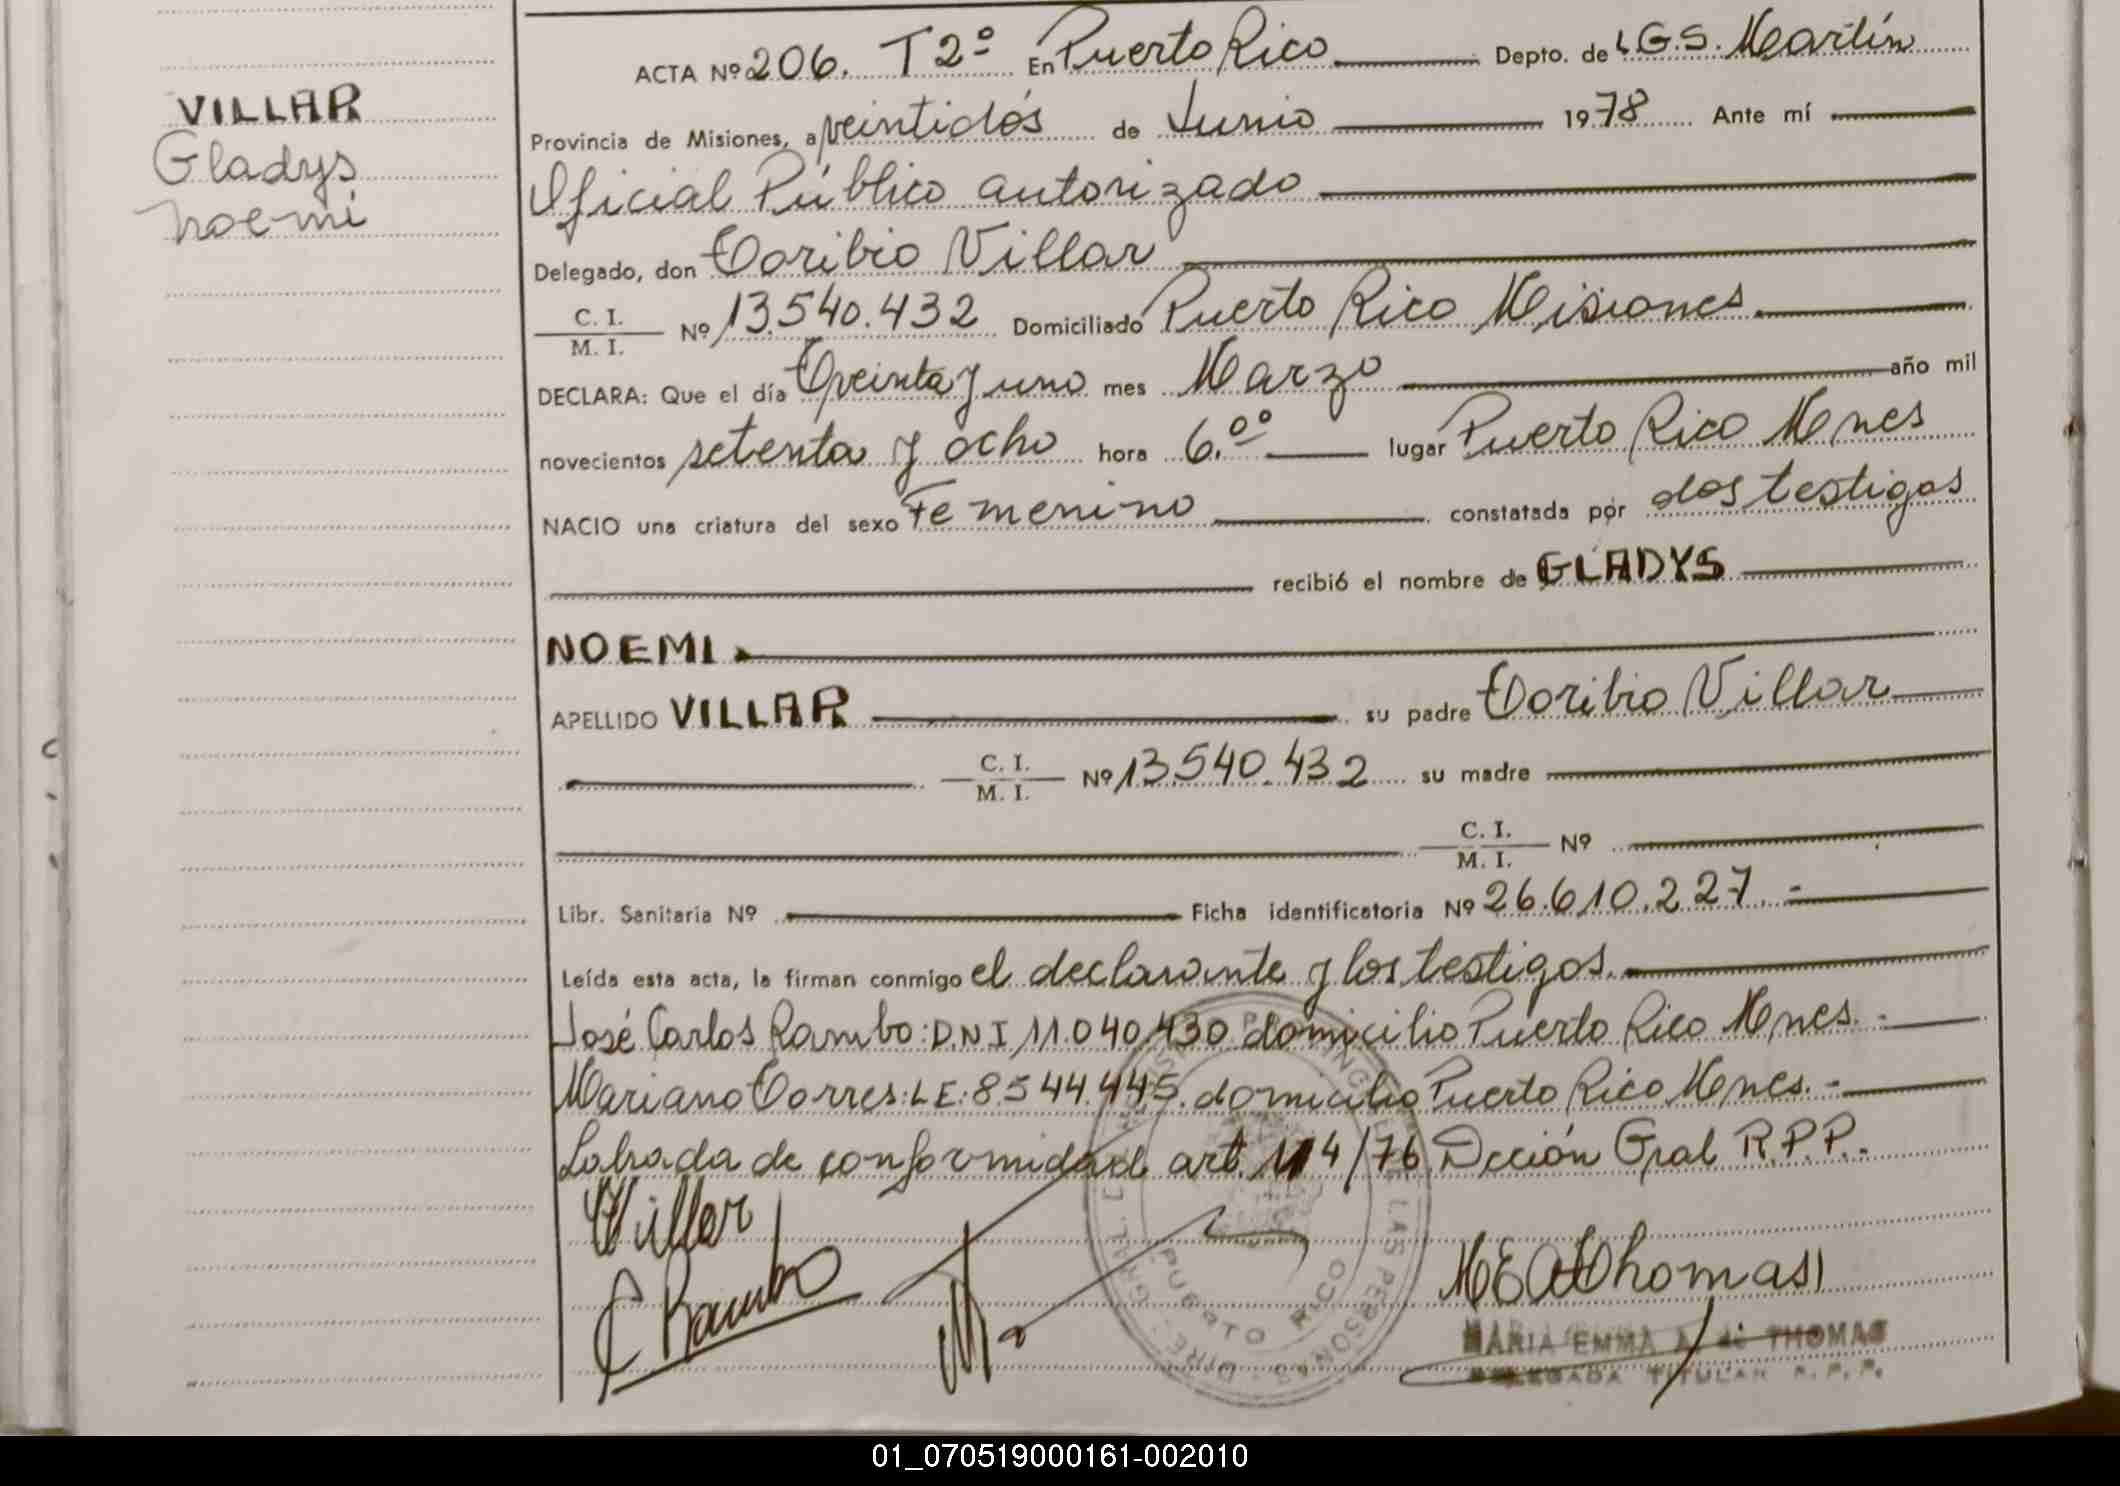 VILLAR
Gladys
Noemi
ACTA Nº 206. T 2º En Puerto Rico Depto. de L.G.S. Martín
Provincia de Misiones, a veintidós de Junio 1978 Ante mí
Oficial Público autorizado
Delegado, don Toribio Villar
C. I. / M. I. Nº 13.540.432 Domiciliado Puerto Rico Misiones
DECLARA: Que el día Treinta y uno mes Marzo año mil
novecientos setenta y ocho hora 6.ºº lugar Puerto Rico Mnes
NACIO una criatura del sexo Femenino constatada por dos testigos
recibió el nombre de GLADYS
NOEMI
APELLIDO VILLAR su padre Toribio Villar
C. I. / M. I. Nº 13.540.432 su madre
C. I. / M. I. Nº
Libr. Sanitaria Nº Ficha identificatoria Nº 26.610.227.-
Leída esta acta, la firman conmigo el declarante y los testigos.
José Carlos Rambo: D.N.I 11.040.430 domicilio Puerto Rico Mnes.-
Mariano Torres: LE: 8.544.445. domicilio Puerto Rico Mnes.-
Labrada de conformidad art. 114/76 Dcción Gral R.P.P.-
Villar
C Rambo
PUERTO RICO
LAS PERSONAS
M E A Thomas
MARIA EMMA A. de THOMAS
DELEGADA TITULAR R. P. P.
01_070519000161-002010